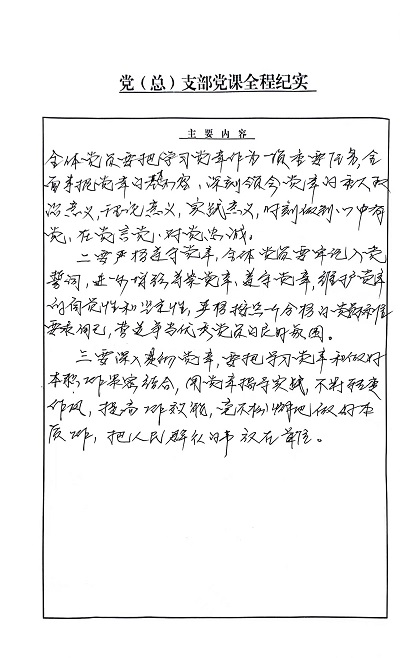 党（总）支部党课全程纪实
主要内容
全体党员要把学习党章作为一项重要任务,全
面掌握党章的基本内容，深刻领会党章的重大政
治意义,理论意义，实践意义，时刻做到心中有
党，在党言党、对党忠诚。
二要严格遵守党章，全体党员要牢记入党
誓词，进一步增强尊崇党章,遵守党章,维护党章
的自觉性和坚定性，严格按照合格的党员标准
要求自己,营造争当优秀党员的良好氛围。
三要深入贯彻党章，要把学习党章和做好
本职工作紧密结合，用党章指导实践，不断转变
作风，提高工作效能，毫不松懈地做好本
质工作，把人民群众的事放在首位。